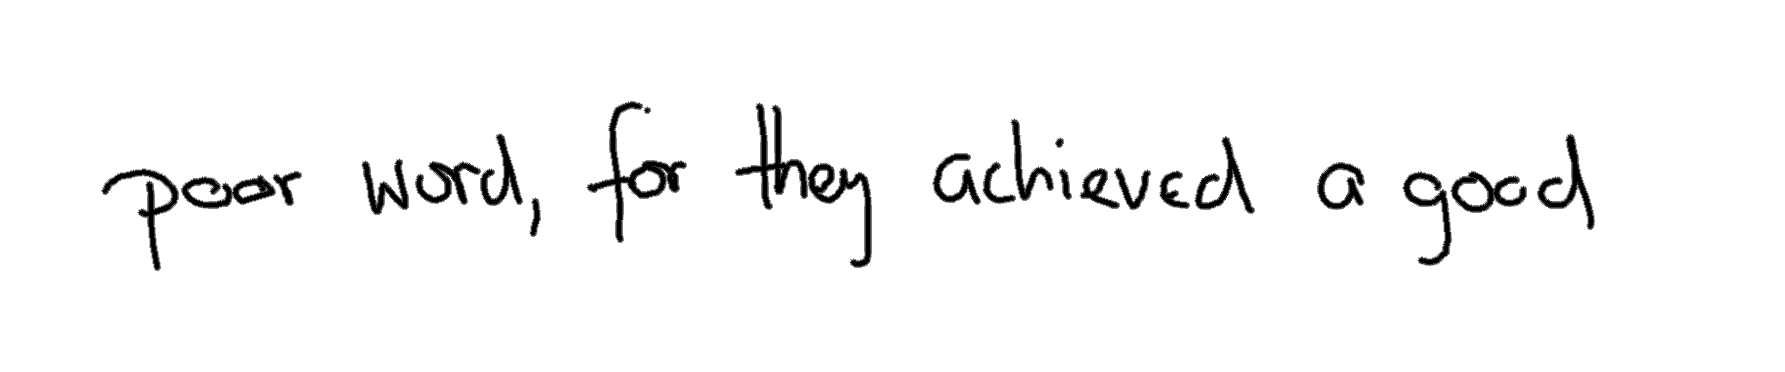 poor word, for they achieved a good